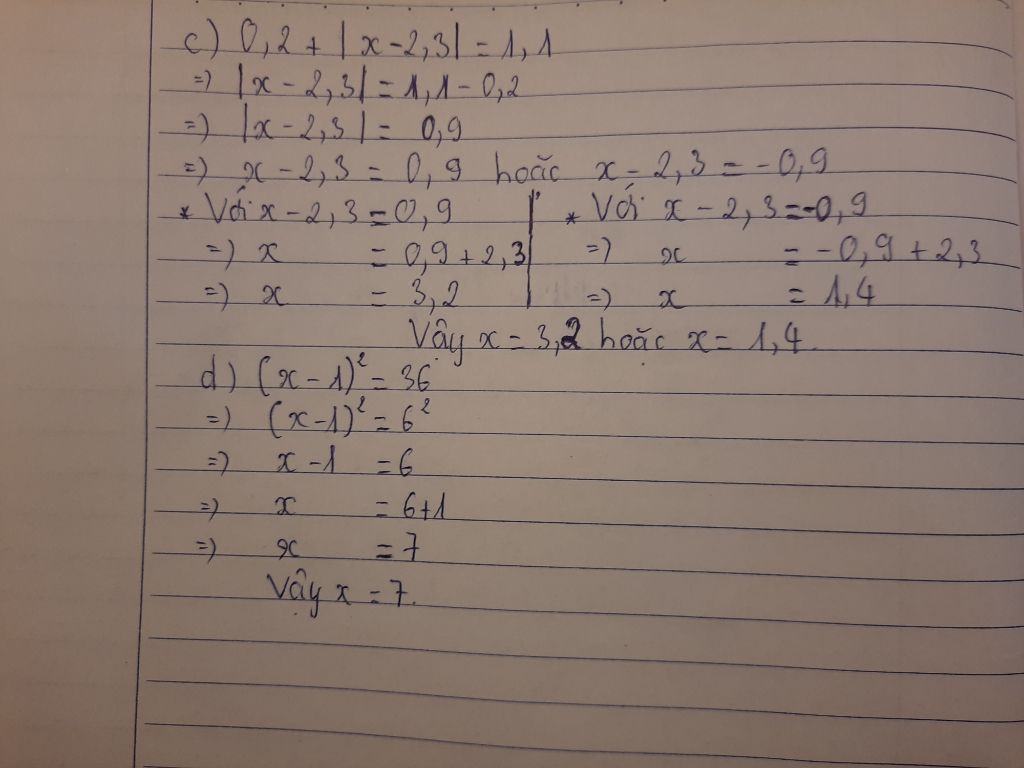 c) 0,2 + |x - 2,3| = 1,1
=) |x - 2,3| = 1,1 - 0,2
=) |x - 2,3| = 0,9
=) x - 2,3 = 0,9 hoặc x - 2,3 = -0,9
* Với x - 2,3 = 0,9
=) x = 0,9 + 2,3
=) x = 3,2
* Với x - 2,3 = -0,9
=) x = -0,9 + 2,3
=) x = 1,4
Vậy x = 3,2 hoặc x = 1,4.
d) (x - 1)² = 36
=) (x - 1)² = 6²
=) x - 1 = 6
=) x = 6+1
=) x = 7
Vậy x = 7.